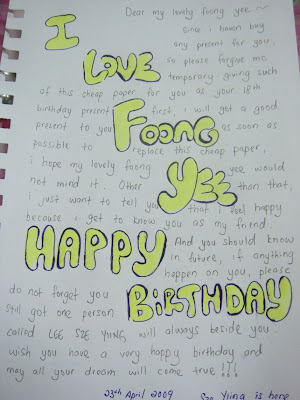 Dear my lovely foong yee ~
I
Since i haven buy
any present for you,
LOVE
so please forgive me
temporary giving such
of this cheap paper for you as your 18th
birthday present first, i will got a good
present to you as soon as
FOONG
possible to replace this cheap paper,
i hope my lovely foong yee would
YEE
not mind it. Other than that,
i just want to tell you that i feel happy
because i get to know you as my friend.
HAPPY
And you should know
in future, if anything
happen on you, please
do not forget you
BIRTHDAY
still got one person
called LEE SZE YIING will always beside you
wish you have a very happy birthday and
may all your dream will come true !!!
23th April 2009
Sze Yiing is here